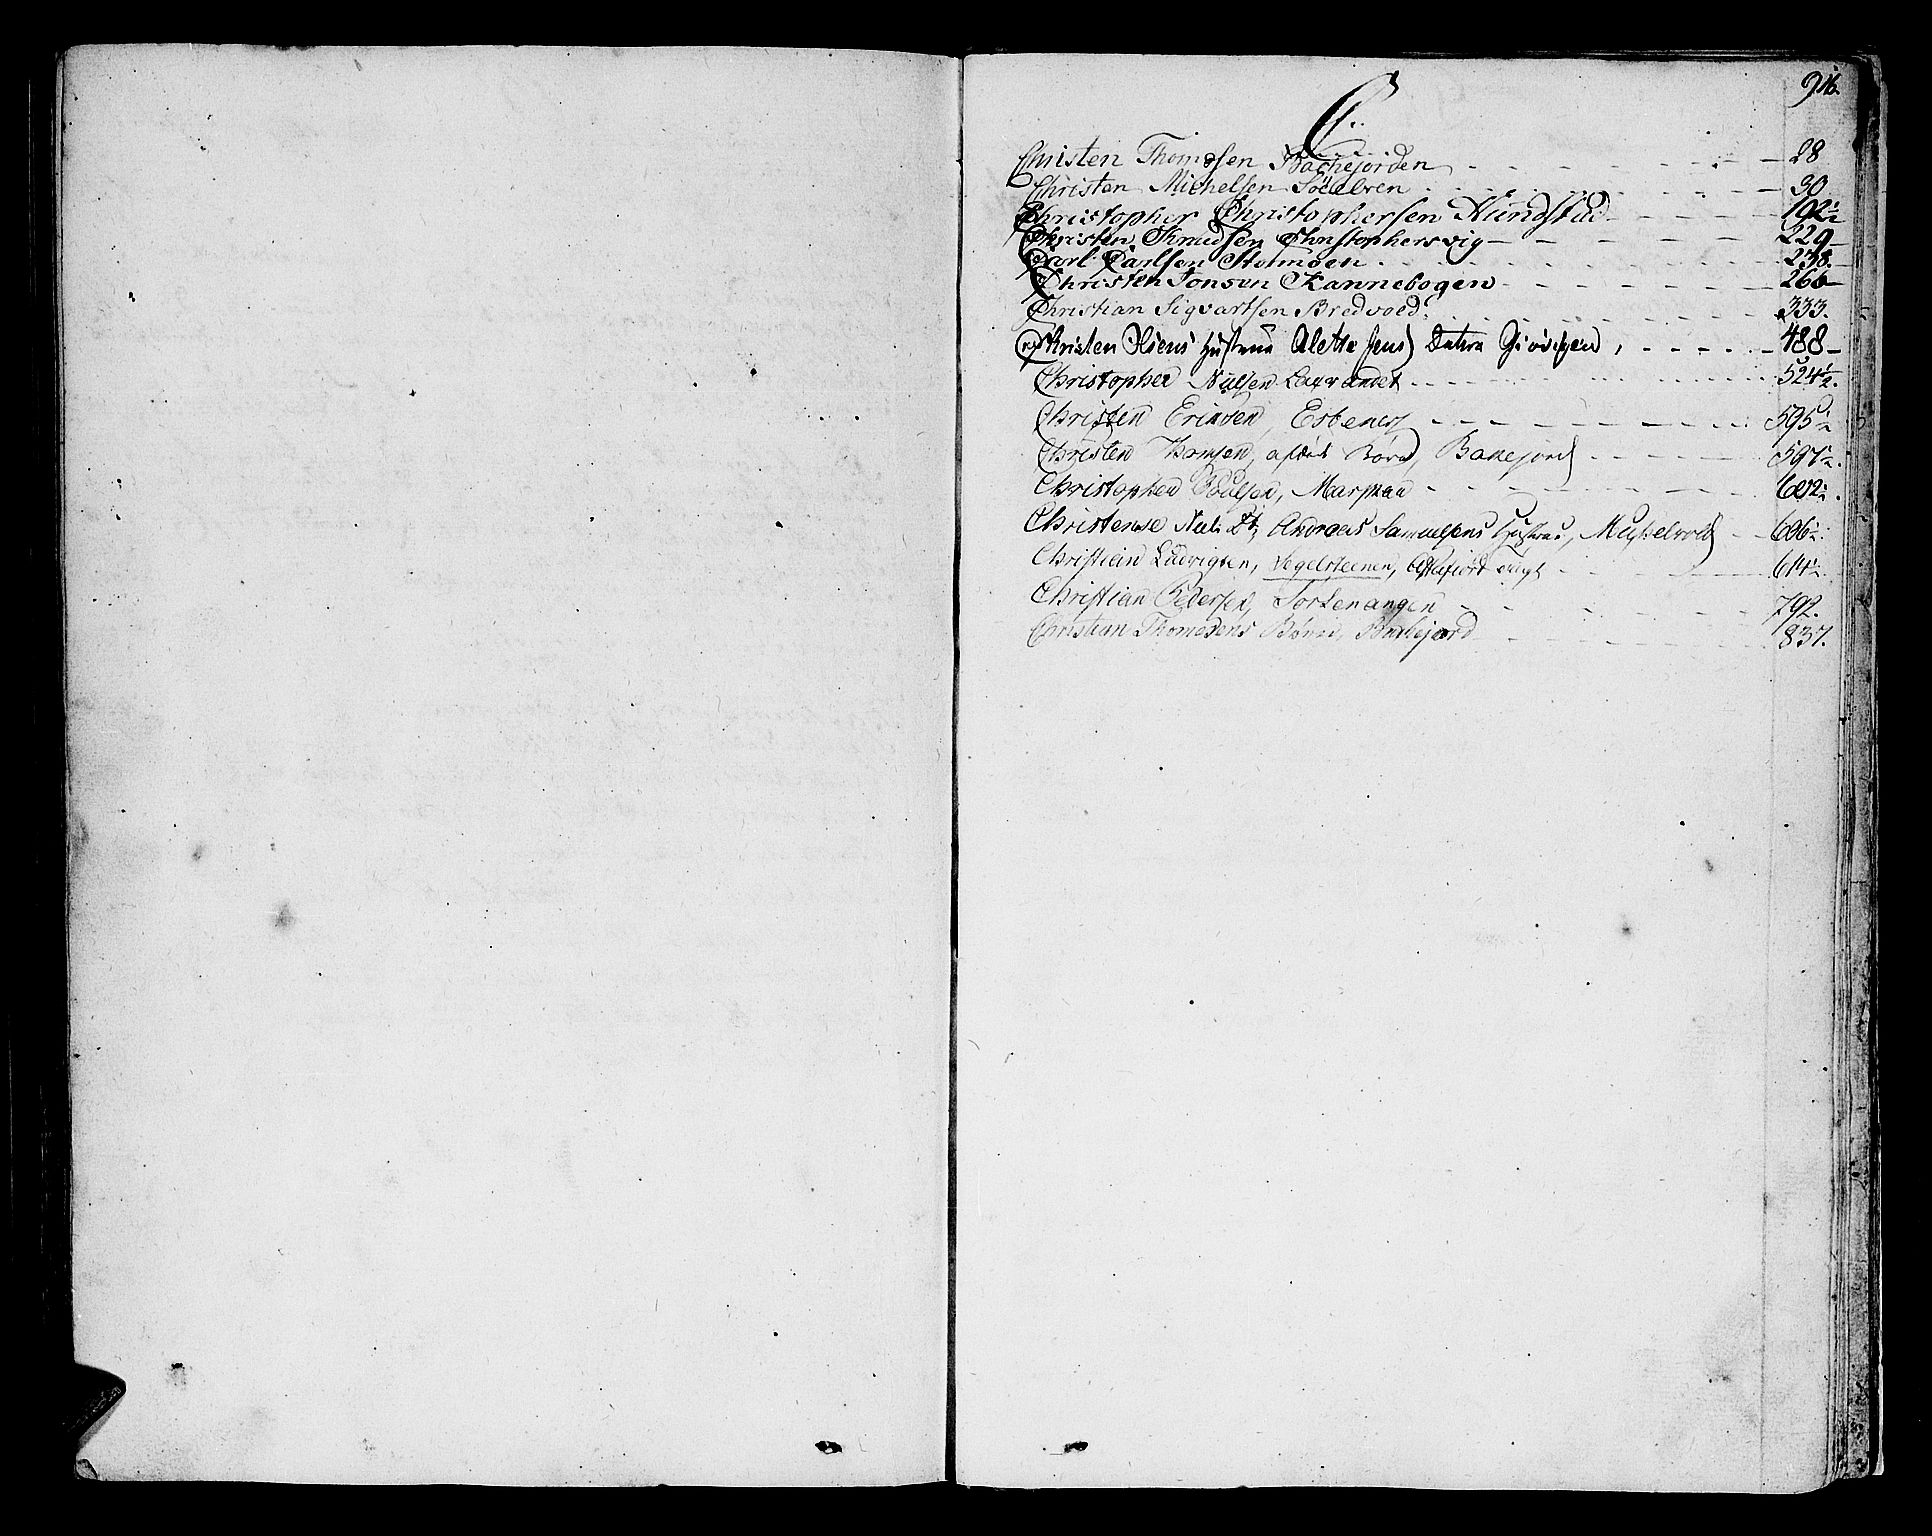 C..
Christen Thomsen Bachejorden 28
Christen Michelsen 30
Christopher Christophersen Hundstad 192½
Christen Knudsen Christophersvig 229
Carl Carlsen Stormoen 238.
Christen Jonsen Kannebogen 266
Christian Sigvartsen Bredvold 333.
Christen Hustrue Aletta Jens Datter 488
Christopher Nielsen Laxvandet 524½.
Christen Ericksen, Esbenes 595½
Christen Thomsen, Børn, Bakejord 597½.
Christopher Poulsen, 602½.
Christense Niels Dt, Andreas Samuelsens Hustrue, 606½.
Christian Ludvigsen, Tegelsteenen, 614½
Christian Pedersen, Sorbenangen 792.
Christian Thomesens Børn, Bakejord 837.